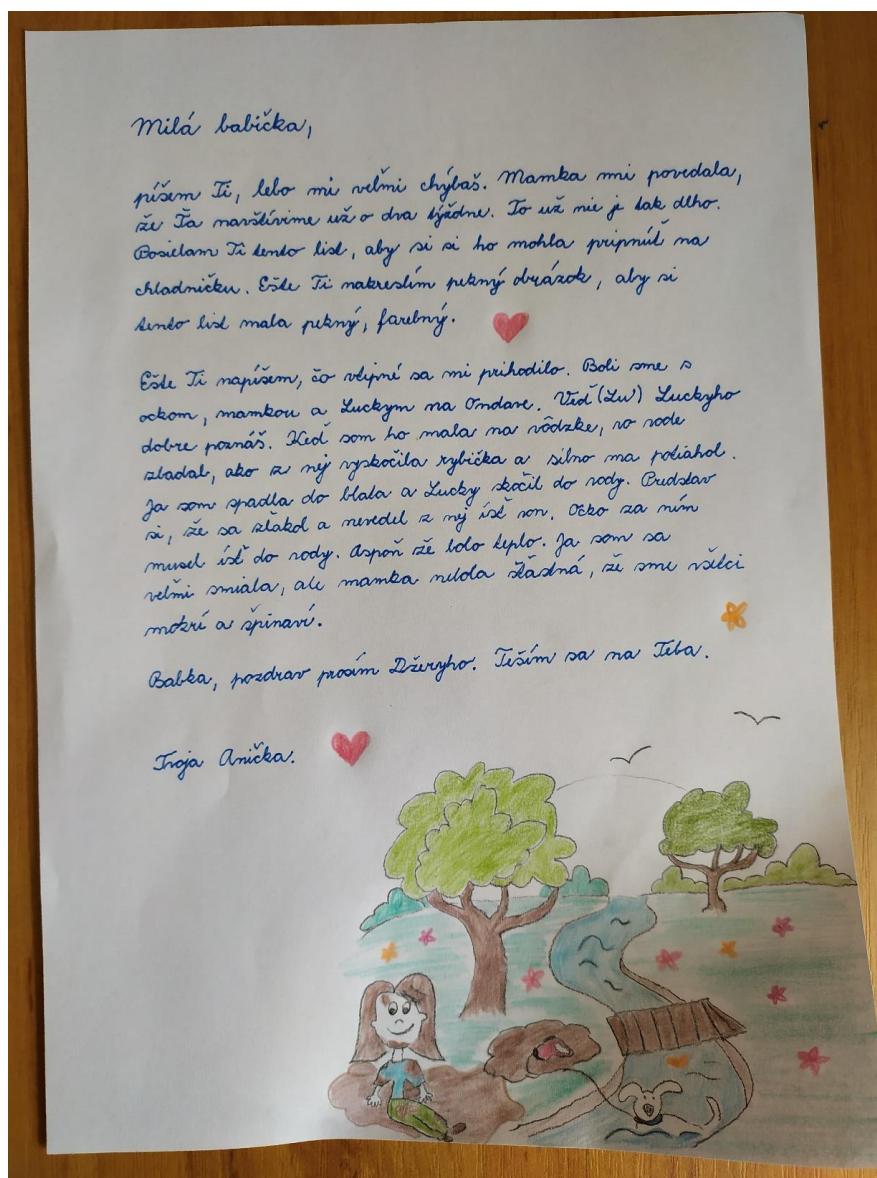 Milá babička,
píšem Ti, lebo mi veľmi chýbaš. Mamka mi povedala,
že Ťa navštívime už o dva týždne. To už nie je tak dlho.
Posielam Ti tento list, aby si si ho mohla pripnúť na
chladničku. Ešte Ti nakreslím pekný obrázok, aby si
tento list mala pekný, farebný.
Ešte Ti napíšem, čo vtipné sa mi prihodilo. Boli sme s
ockom, mamkou a Luckym na Ondave. Veď (Lu) Luckyho
dobre poznáš. Keď som ho mala na vôdzke, vo vode
zbadal, ako z nej vyskočila rybička a silno ma potiahol.
Ja som spadla do blata a Lucky skočil do vody. Predstav
si, že sa zľakol a nevedel z nej ísť von. Ocko za ním
musel ísť do vody. Aspoň že bolo teplo. Ja som sa
veľmi smiala, ale mamka nebola šťastná, že sme všetci
mokrí a špinaví.
Babka, pozdrav prosím Džeryho. Teším sa na Teba.
Tvoja Anička.